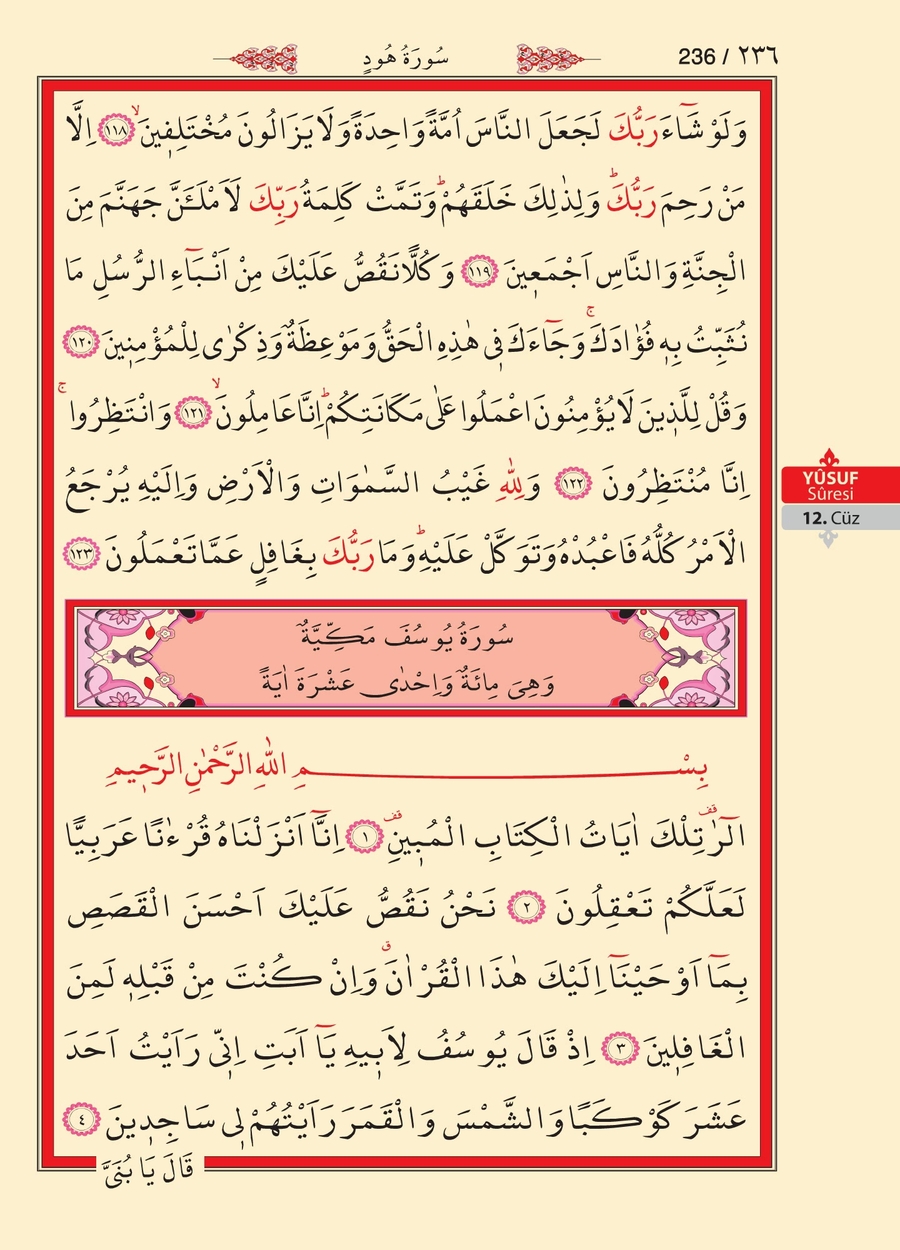 سُورَةُ هُودٍ
236 / ٢٣٦
وَلَوْ شَٓاءَ رَبُّكَ لَجَعَلَ النَّاسَ اُمَّةً وَاحِدَةً وَلَا يَزَالُونَ مُخْتَلِف۪ينَۙ ﴿١١٨﴾ اِلَّا
مَنْ رَحِمَ رَبُّكَۜ وَلِذٰلِكَ خَلَقَهُمْۜ وَتَمَّتْ كَلِمَةُ رَبِّكَ لَاَمْلَـَٔنَّ جَهَنَّمَ مِنَ
الْجِنَّةِ وَالنَّاسِ اَجْمَع۪ينَ ﴿١١٩﴾ وَكُلًّا نَقُصُّ عَلَيْكَ مِنْ اَنْـبَٓاءِ الرُّسُلِ مَا
نُثَبِّتُ بِه۪ فُؤٰادَكَۚ وَجَٓاءَكَ ف۪ي هٰذِهِ الْحَقُّ وَمَوْعِظَةٌ وَذِكْرٰى لِلْمُؤْمِن۪ينَ ﴿١٢٠﴾
وَقُلْ لِلَّذ۪ينَ لَا يُؤْمِنُونَ اعْمَلُوا عَلٰى مَكَانَتِكُمْۜ اِنَّا عَامِلُونَۙ ﴿١٢١﴾ وَانْتَظِرُواۚ
اِنَّا مُنْتَظِرُونَ ﴿١٢٢﴾ وَلِلّٰهِ غَيْبُ السَّمٰوَاتِ وَالْاَرْضِ وَاِلَيْهِ يُرْجَعُ
الْاَمْرُ كُلُّهُ فَاعْبُدْهُ وَتَوَكَّلْ عَلَيْهِۜ وَمَا رَبُّكَ بِغَافِلٍ عَمَّا تَعْمَلُونَ ﴿١٢٣﴾
YÛSUF
Sûresi
12. Cüz
سُورَةُ يُوسُفَ مَكِّيَّةٌ
وَهِيَ مِائَةٌ وَاِحْدٰى عَشْرَةَ اٰيَةً
بِسْمِ اللّٰهِ الرَّحْمٰنِ الرَّح۪يمِ
الٓرٰ۠ تِلْكَ اٰيَاتُ الْكِتَابِ الْمُب۪ينِ۠ ﴿١﴾ اِنَّٓا اَنْزَلْنَاهُ قُرْءٰنًا عَرَبِيًّا
لَعَلَّكُمْ تَعْقِلُونَ ﴿٢﴾ نَحْنُ نَقُصُّ عَلَيْكَ اَحْسَنَ الْقَصَصِ
بِمَٓا اَوْحَيْنَٓا اِلَيْكَ هٰذَا الْقُرْاٰنَۗ وَاِنْ كُنْتَ مِنْ قَبْلِه۪ لَمِنَ
الْغَافِل۪ينَ ﴿٣﴾ اِذْ قَالَ يُوسُفُ لِاَب۪يهِ يَٓا اَبَتِ اِنّ۪ي رَاَيْتُ اَحَدَ
عَشَرَ كَوْكَبًا وَالشَّمْسَ وَالْقَمَرَ رَاَيْتُهُمْ ل۪ي سَاجِد۪ينَ ﴿٤﴾
قَالَ يَا بُنَيَّ